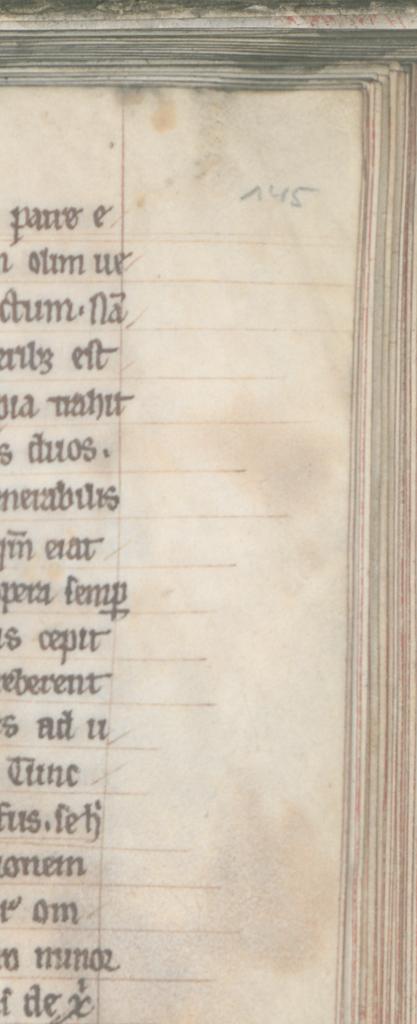 145
e
olim ue
ctum. Nā
eribꝫ est
pia trahit
s duos.
nerabilis
qm̄ erat
opera semꝑ
us cepit
heberent
es ad u
Tunc
sus. set
ionem
om
minor
de